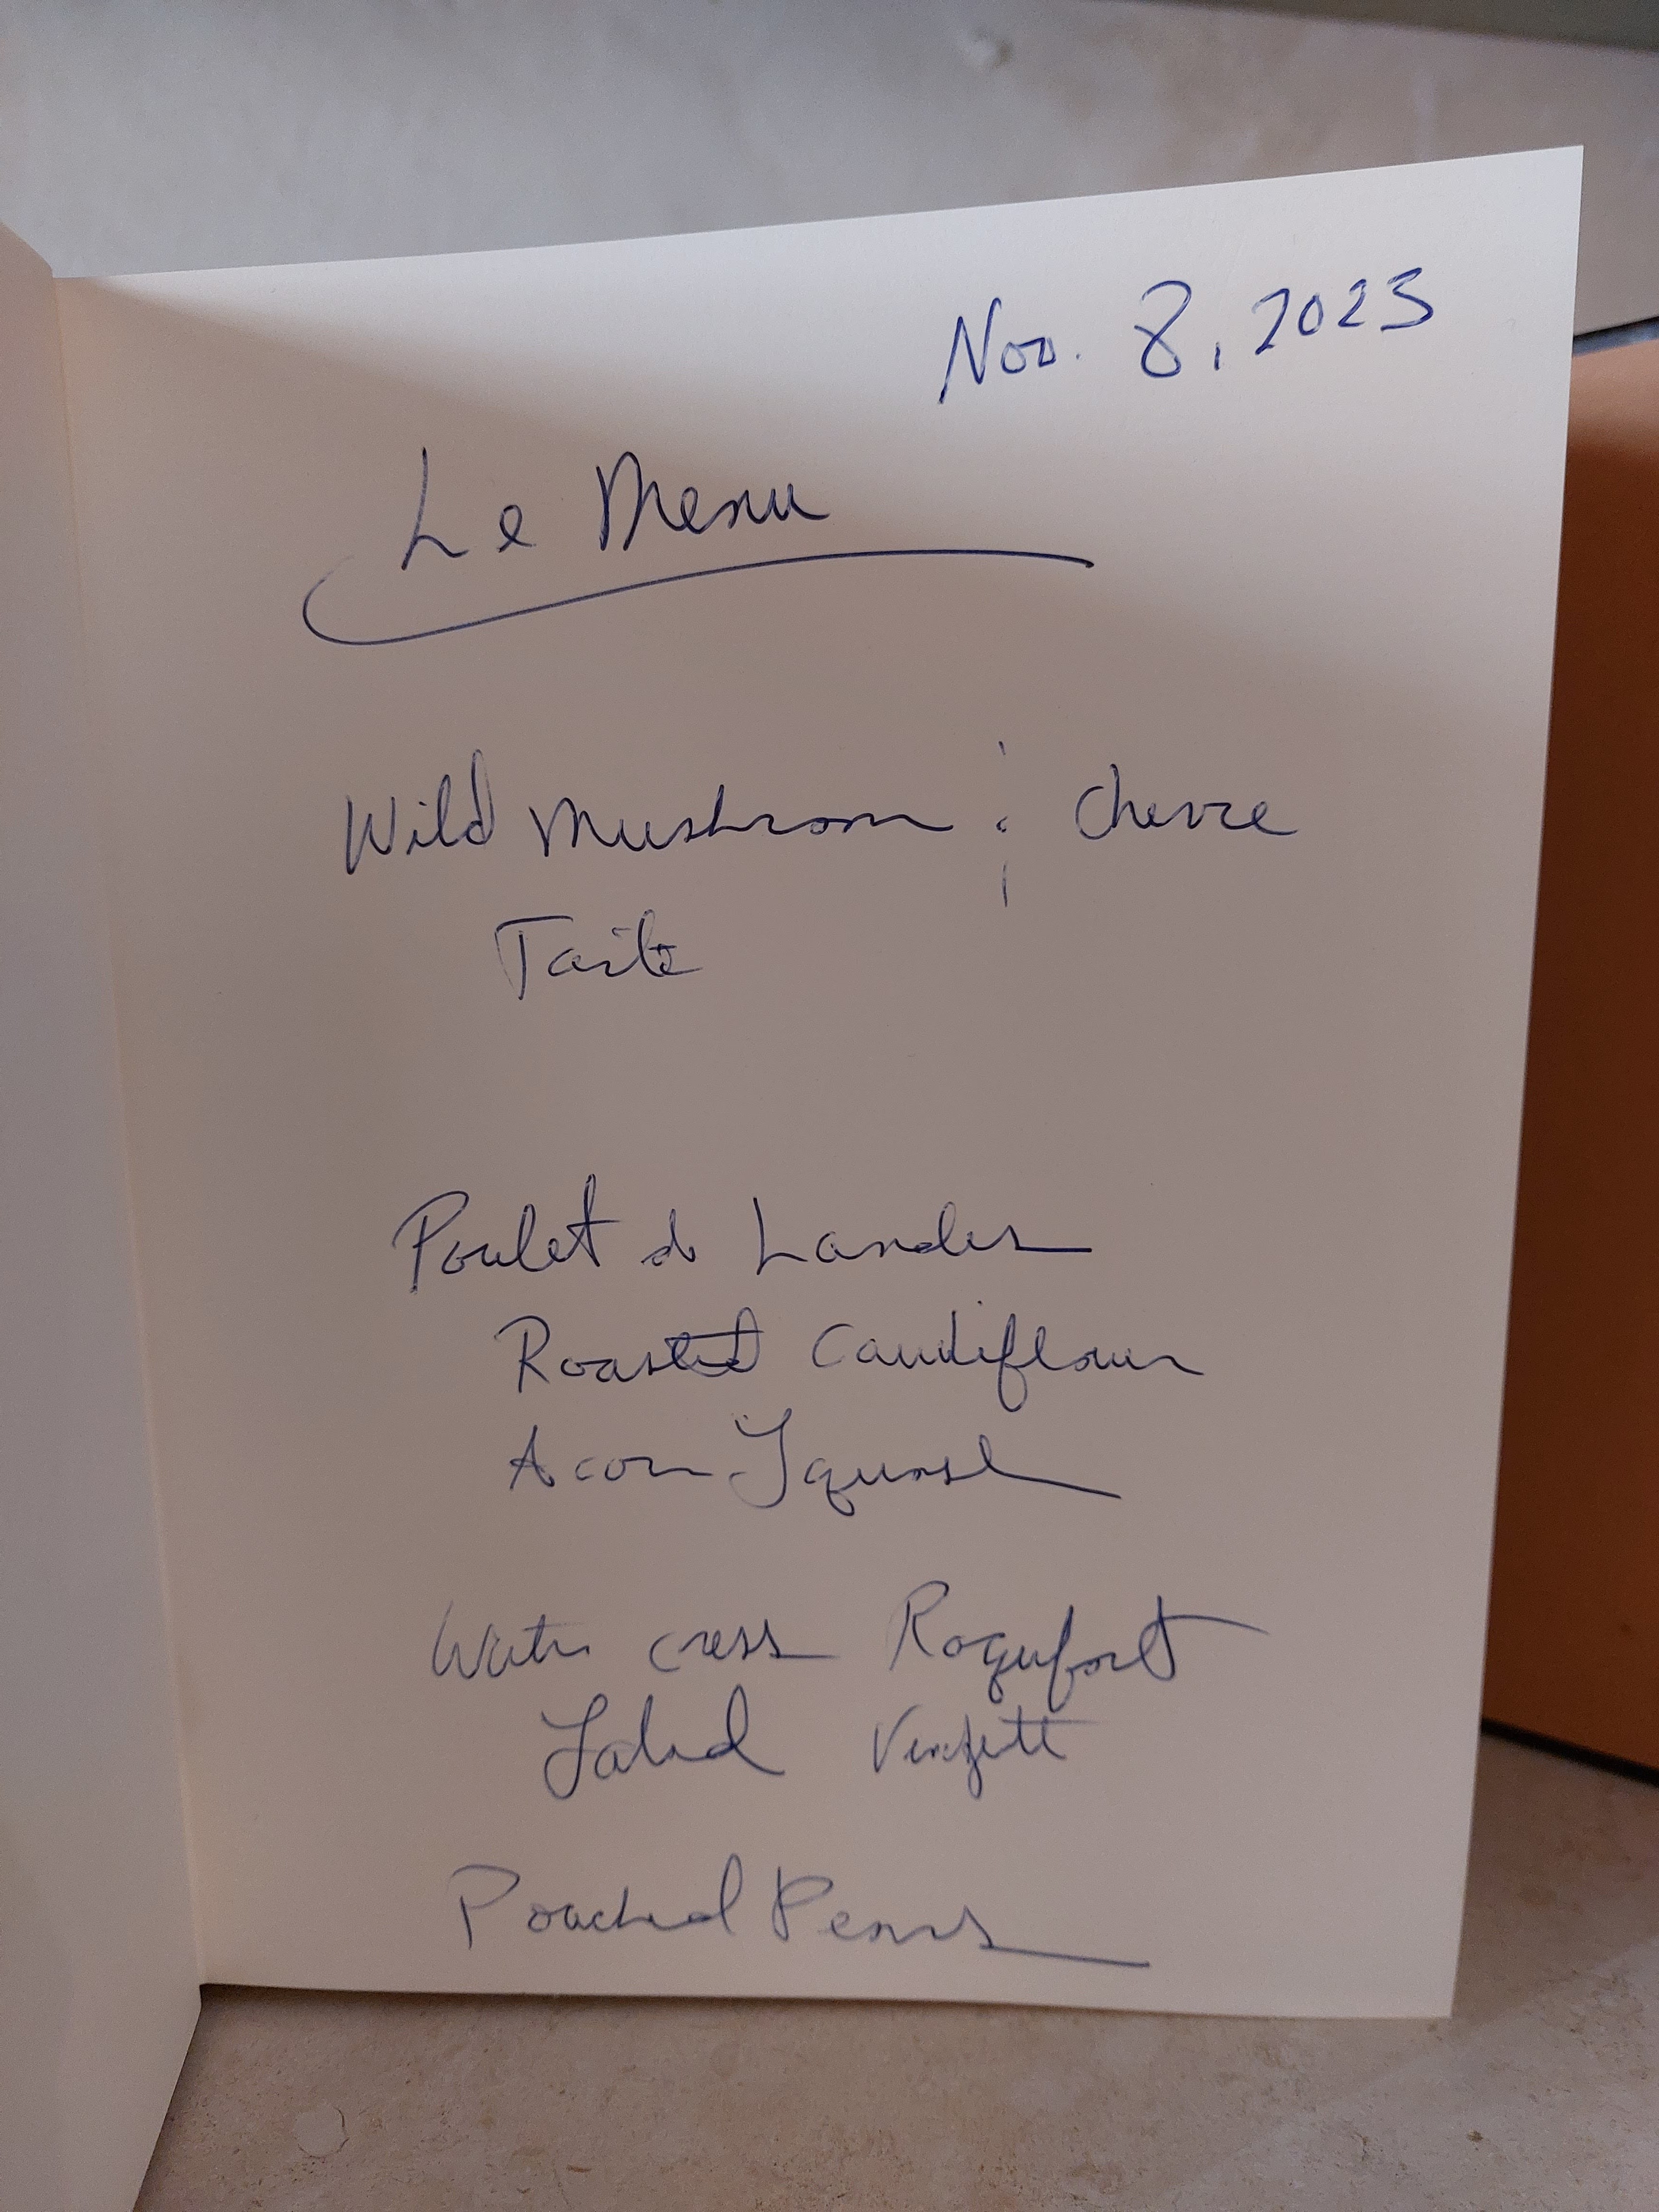 Nov. 8, 2023
Le Menu
Wild Mushroom & Chevre
Tarte
Poulet de Landes
Roasted Cauliflour
Acorn Squash
Water cress Roquefort
Salad
Poached Pears